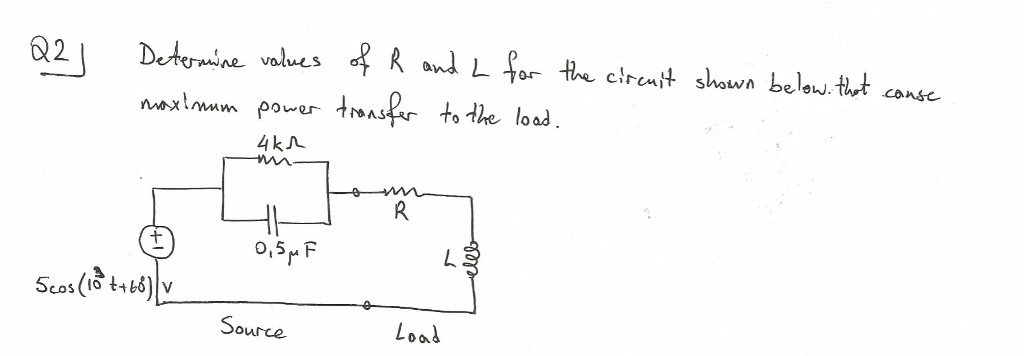 Q2]
Determine values of R and L for the circuit shown below. that cause
maximum power transfer to the load.
4kΩ
R
0,5μF
L
±
5cos(10³t+68) V
Source
Load